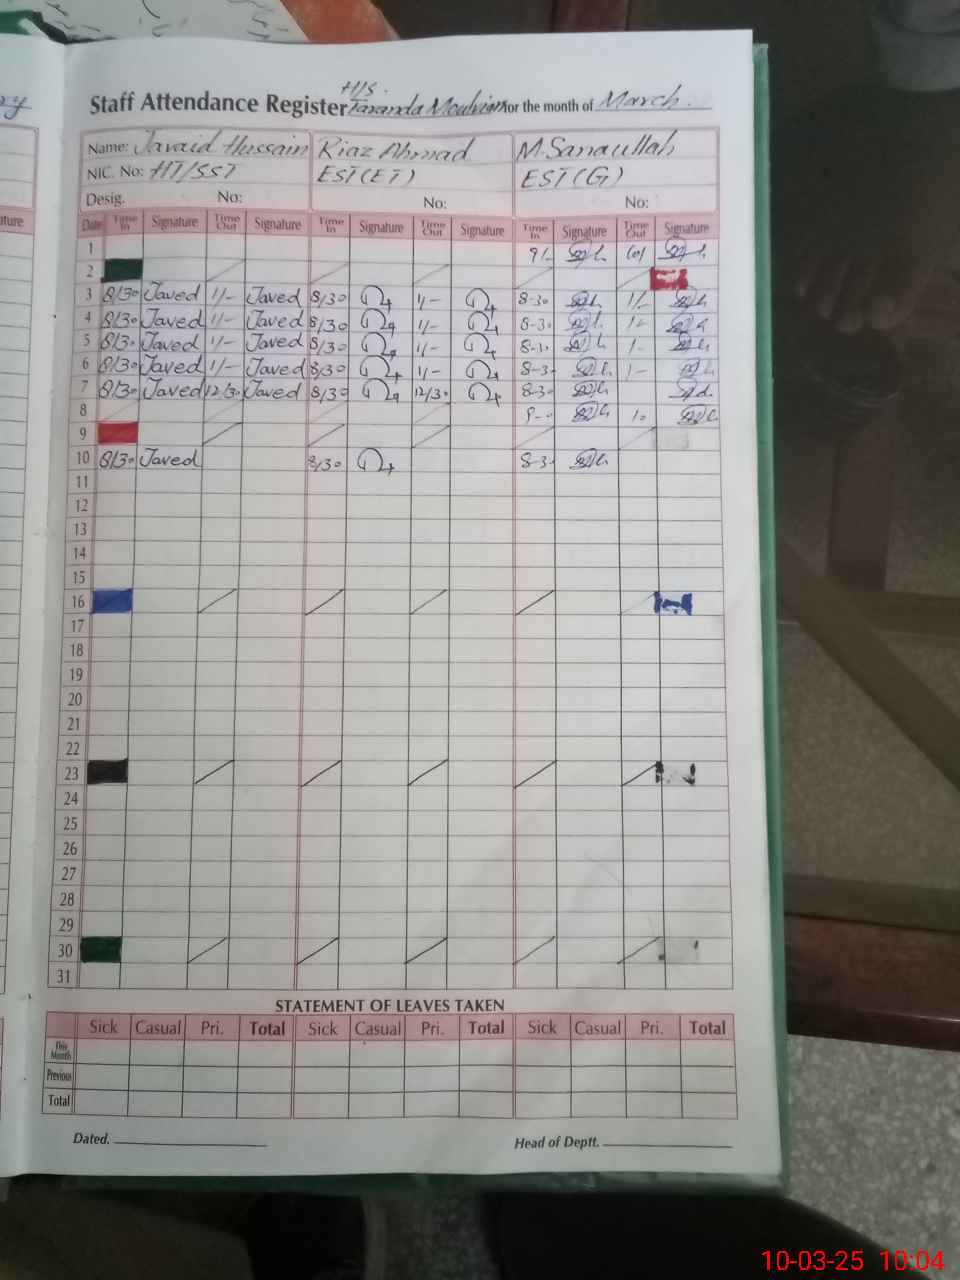 ry
H/S.
Staff Attendance Register Taranda Moulvian for the month of March.
Name: Javaid Hussain Riaz Ahmad M. Sanaullah
NIC. No: HT/SST EST(ET) EST(G)
Desig. No: No: No:
ture Date Time In Signature Time Out Signature Time In Signature Time Out Signature Time In Signature Time Out Signature
1 9/-
2
3 8/30 Javed 1/- Javed 8/30 1/- 8-30 1/-
4 8/30 Javed 1/- Javed 8/30 1/- 8-30 1-
5 8/30 Javed 1/- Javed 8/30 1/- 8-30 1-
6 8/30 Javed 1/- Javed 8/30 1/- 8-3- 1-
7 8/30 Javed 12/30 Javed 8/30 12/30 8-30
8
9
10 8/30 Javed 8/30 8-3-
11
12
13
14
15
16
17
18
19
20
21
22
23
24
25
26
27
28
29
30
31
STATEMENT OF LEAVES TAKEN
Sick Casual Pri. Total Sick Casual Pri. Total Sick Casual Pri. Total
This Month
Previous
Total
Dated. Head of Deptt.
10-03-25 10:04